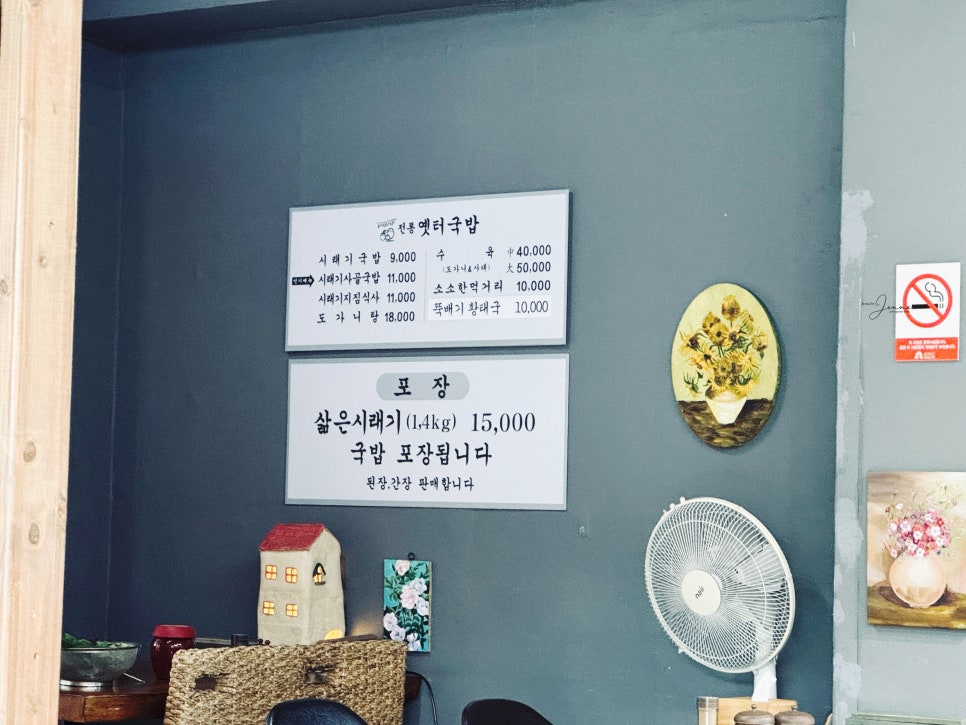 전통 옛터국밥
시래기국밥 9,000
시래기사골국밥 11,000
시래기지짐식사 11,000
도가니탕 18,000
수육 中 40,000
(도가니&사태) 大 50,000
소소한먹거리 10,000
뚝배기 황태국 10,000
포장
삶은시래기 (1,4kg) 15,000
국밥 포장됩니다
된장,간장 판매합니다
Jenne